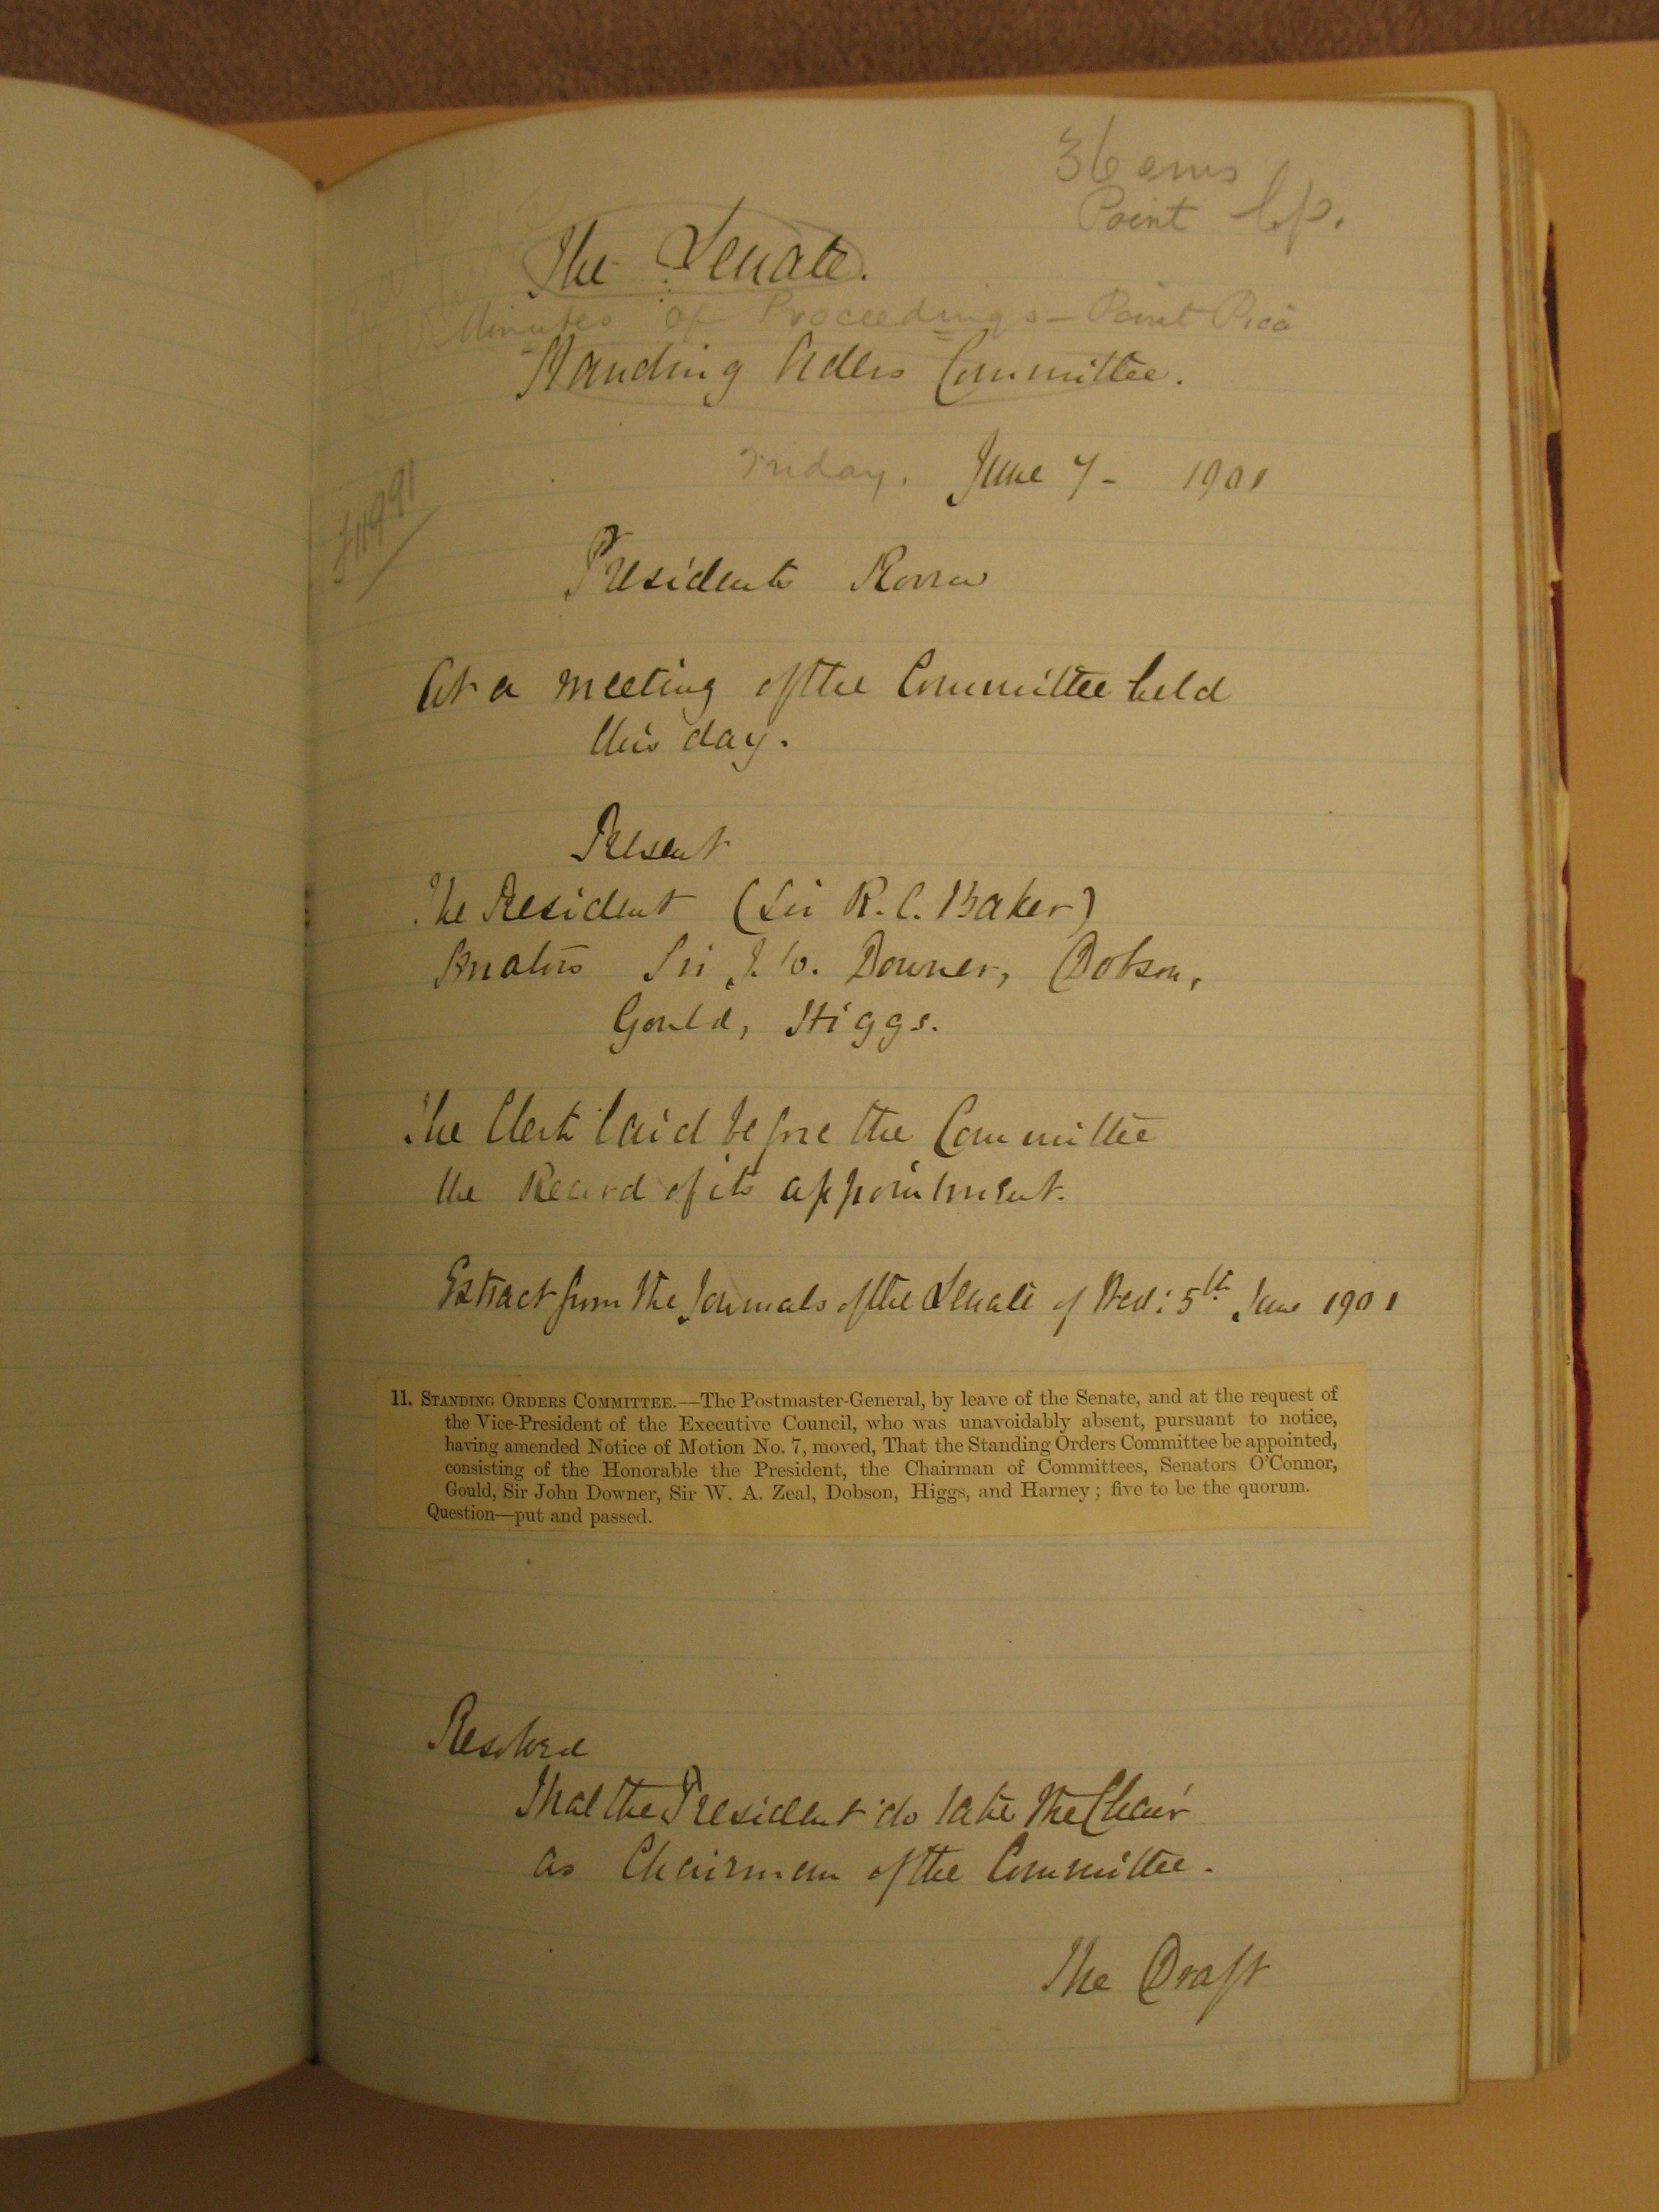 36 ems
Point l.p.
The Senate.
Minutes of Proceedings - Point Pica
Standing Orders Committee.
Friday, June 7 - 1901
Presidents Room
At a meeting of the Committee held
this day.
Present
The President (Sir R. C. Baker)
Senators Sir J. W. Downer, Dobson,
Gould, Higgs.
The Clerk laid before the Committee
the Record of its appointment.
Extract from the Journals of the Senate of Wed: 5th June 1901
11. STANDING ORDERS COMMITTEE.—The Postmaster-General, by leave of the Senate, and at the request of
the Vice-President of the Executive Council, who was unavoidably absent, pursuant to notice,
having amended Notice of Motion No. 7, moved, That the Standing Orders Committee be appointed,
consisting of the Honorable the President, the Chairman of Committees, Senators O'Connor,
Gould, Sir John Downer, Sir W. A. Zeal, Dobson, Higgs, and Harney; five to be the quorum.
Question—put and passed.
Resolved
That the President do take the Chair
as Chairman of the Committee.
The Draft